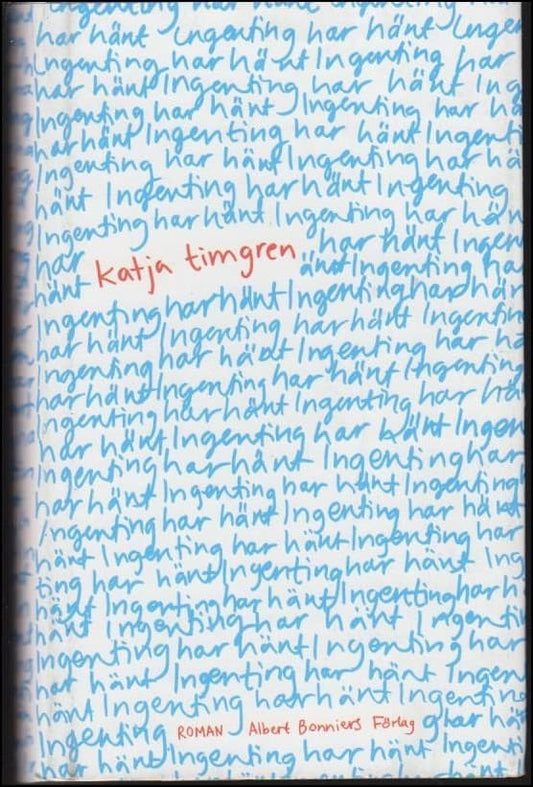 Ingenting har hänt Ingenting
har hänt Ingenting har hänt Ingen
Ingenting har hänt Ingenting har
har hänt Ingenting har hänt Ing
Ingenting har hänt Ingenting har hä
har hänt Ingenting har hänt Ingenti
Ingenting har hänt Ingenting har hä
hänt Ingenting har hänt Ingenting
Ingenting har hänt Ingenting har hän
har katja timgren har hänt Ingen
hänt änt Ingenting ha
Ingenting har hänt Ingenting har här
har hänt Ingenting har hänt Ingentin
Ingenting har hänt Ingenting har ha
har hänt Ingenting har hänt Ingenting
Ingenting har hänt Ingenting har hä
har hänt Ingenting har hänt Ingen
Ingenting har hänt Ingenting har
har hänt Ingenting har hänt Ingenting
Ingenting har hänt Ingenting har hänt
hänt Ingenting har hänt Ingenting
ting har hänt Ingenting har hänt Ing
hänt Ingenting har hänt Ingenting har h
hänt Ingenting har hänt Ingentin
Ingenting har hänt Ingenting har
har hänt Ingenting har hänt Ingen
hänt Ingenting har hänt Ingenting
Ingenting ROMAN Albert Bonniers Förlag g har hän
har hänt Ingenting har hänt Ingenti